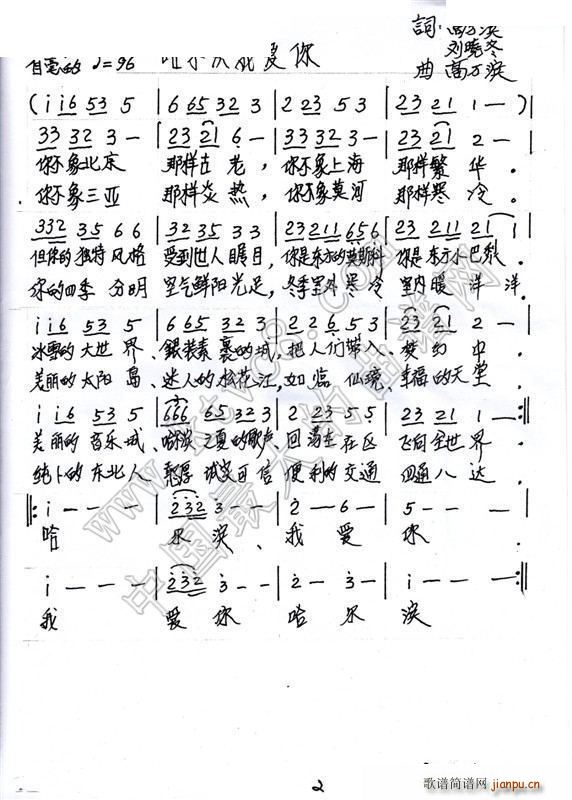 詞 高万滨
刘晓冬
自豪的 ♩=96 哈尔滨我爱你
曲 高万滨
( i i6 53 5 | 6 65 32 3 | 2 23 5 3 | 23 21 1 — )
33 32 3 — | 23 21 6 — | 33 32 3 — | 23 21 2 —
你不象北京 那样古老, 你不象上海 那样繁华.
你不象三亚 那样炎热, 你不象莫河 那样寒冷.
332 35 6 6 | 32 35 3 3 | 23 211 656 6 | 23 211 21
但你的独特风格 受到世人瞩目, 你是东方的莫斯科 你是东方小巴黎
你的四季 分明 空气鲜阳光足, 冬季室外寒冷 室内暖洋洋.
i i6 53 5 | 6 65 32 3 | 2 2 6 5 3 | 23 21 2 —
冰雪的大世界、銀装素裹的城, 把人们带入、梦幻中.
美丽的太阳岛、迷人的松花江, 如临仙境、幸福的天堂.
i i6 53 5 | 666 65 32 3 | 2 23 5 5 | 23 21 1 — :‖
美丽的音乐城、哈滨之夏的歌声、回荡在 飞向全世界
纯卜的东北人 憨厚诚实可信 便利的交通 四通八达
‖: i — — — | 232 3 — — | 2 — 6 — | 5 — — —
哈 尔滨、我爱你
i — — — | 232 3 — — | 2 — 3 — | i — — — :‖
我 爱你 哈尔滨
www.ktvc8.com
中国最大的曲谱网
2
歌谱简谱网
jianpu.cn